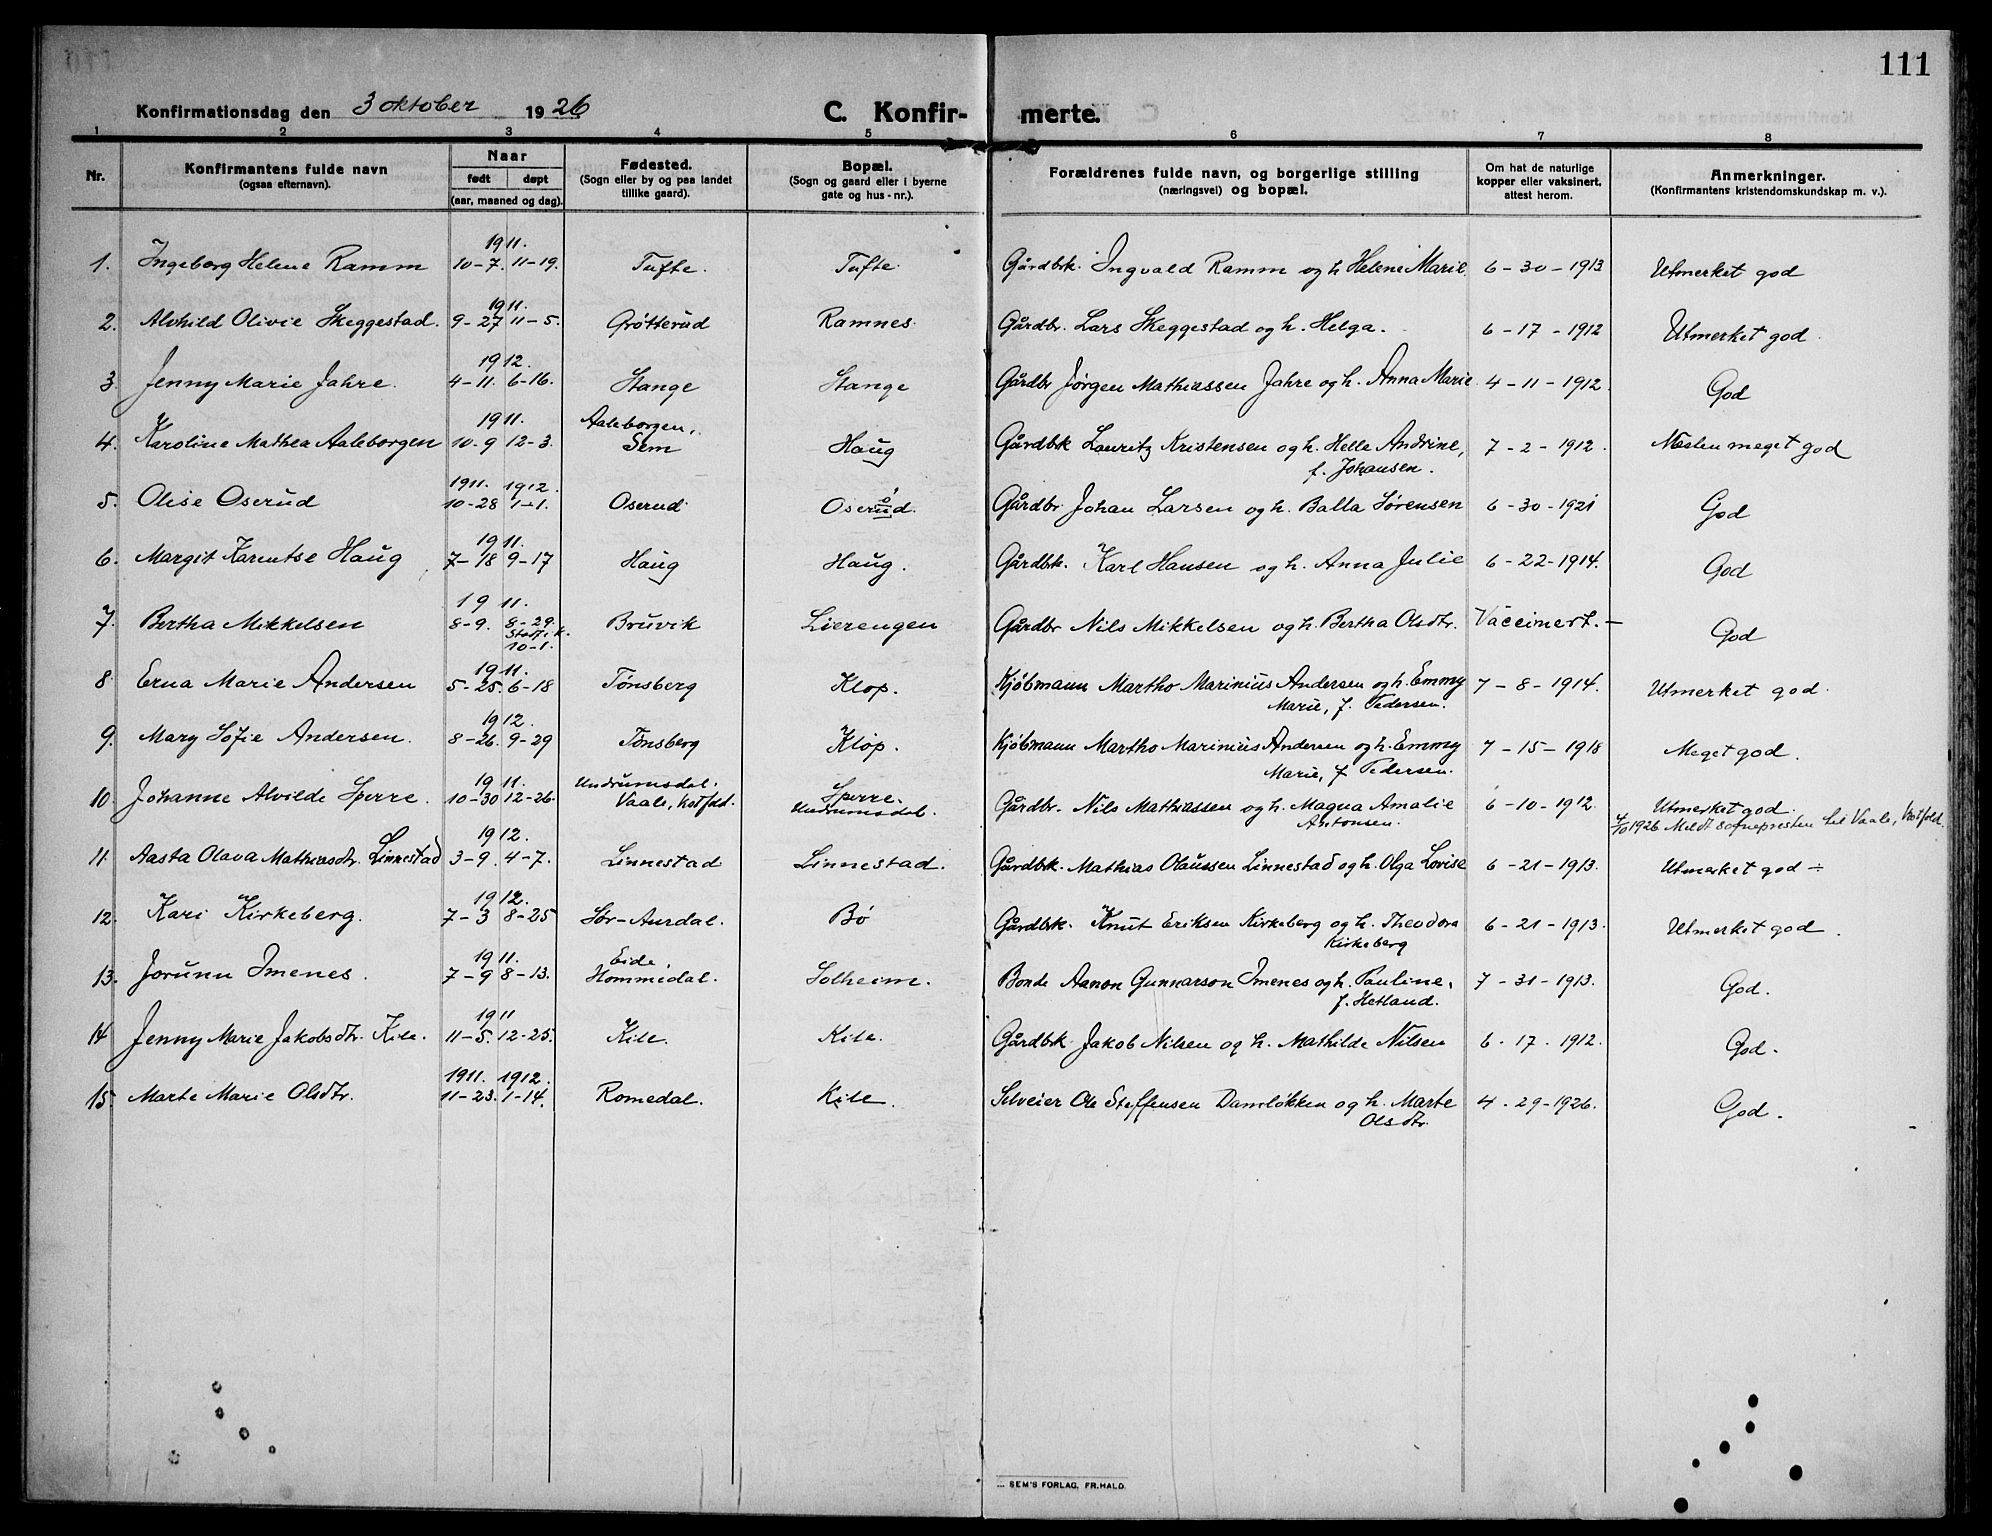 111
Konfirmationsdag den 3 oktober 1926 C. Konfir- merte.
1 2 3 4 5 6 7 8
Nr. Konfirmantens fulde navn (ogsaa efternavn). Naar født døpt (aar, maaned og dag). Fødested. (Sogn eller by og paa landet tillike gaard). Bopæl. (Sogn og gaard eller i byerne gate og hus-nr.). Forældrenes fulde navn, og borgerlige stilling (næringsvei) og bopæl. Om hat de naturlige kopper eller vaksinert, attest herom. Anmerkninger. (Konfirmantens kristendomskundskap m. v.).
1911.
1. Ingeborg Helene Ramm 10-7. 11-19. Tufte. Tufte Gårdbrk. Ingvald Ramm og h Helene Marie. 6-30-1913 Utmerket god
1911.
2. Alvhild Olivie Skeggestad. 9-27 11-5. Grøtterud Ramnes. Gårdbr. Lars Skeggestad og h. Helga. 6-17-1912 Utmerket god.
1912.
3. Jenny Marie Jahre. 4-11. 6-16. Stange Stange Gårdbr Jørgen Mathiassen Jahre og h. Anna Marie. 4-11-1912. God
1911. Aaleborgen,
4. Karoline Mathea Aaleborgen 10-9 12-3. Sem Haug Gårdbrk Lauritz Kristensen og h. Helle Andrine, 7-2-1912. Næsten meget god
f. Johansen.
1911. 1912.
5. Olise Oserud 10-28 1-1. Oserud Oserud. Gårdbr. Johan Larsen og h. Balla Sørensen 6-30-1921 God
1911.
6. Margit Karentse Haug 7-18 9-17 Haug Haug. Gårdbrk. Karl Hansen og h. Anna Julie 6-22-1914. God
1911.
7. Bertha Mikkelsen 8-9. 8-29. Bruvik Lierengen Gårdbr Nils Mikkelsen og h. Bertha Olsdtr. Vaccinert.- God
Stadf. i k.
10-1.
1911.
8. Erna Marie Andersen 5-25. 6-18 Tønsberg Klop. Kjøbmann Martho Marinius Andersen og h. Emmy 7-8-1914. Utmerket god.
Marie, f. Pedersen.
1912.
9. Mary Sofie Andersen. 8-26. 9-29 Tønsberg Klop. Kjøbmann Martho Marinius Andersen og h. Emmy 7-15-1918 Meget god.
Marie, f Pedersen.
1911. Undrumsdal. Sperre.
10. Johanne Alvilde Sperre. 10-30 12-26. Vaale, Vestfold. Undrumsdal. Gårdbr. Nils Mathiassen og h. Magna Amalie 6-10-1912. Utmerket god.
Antonsen. 4/10 1926. Meldt sognepresten til Vaale, Vestfold.
1912.
11. Aasta Olava Mathiasdtr. Linnestad 3-9. 4-7. Linnestad Linnestad. Gårdbrk. Mathias Olaussen Linnestad og h. Olga Lovise 6-21-1913. Utmerket god ÷
1912.
12. Kari Kirkeberg. 7-3 8-25 Sør-Aurdal. Bø Gårdbrk. Knut Eriksen Kirkeberg og h. Theodora 6-21-1913. Utmerket god.
Kirkeberg
1911. Eide,
13. Jorunn Imenes. 7-9 8-13. Hommedal. Solheim. Bonde Aanon Gunnarson Imenes og h. Pauline, 7-31-1913. God.
f. Hetland.
1911
14 Jenny Marie Jakobsdtr. Kile. 11-5. 12-25. Kile. Kile. Gårdbrk. Jakob Nilsen og h. Mathilde Nilsen 6-17-1912. God.
1911. 1912.
15. Marte Marie Olsdtr. 11-23. 1-14. Romedal. Kile. Selveier Ole Steffensen Damløkken og h. Marte 4-29-1926. God.
Olsdtr.
SEM'S FORLAG, FR.HALD.